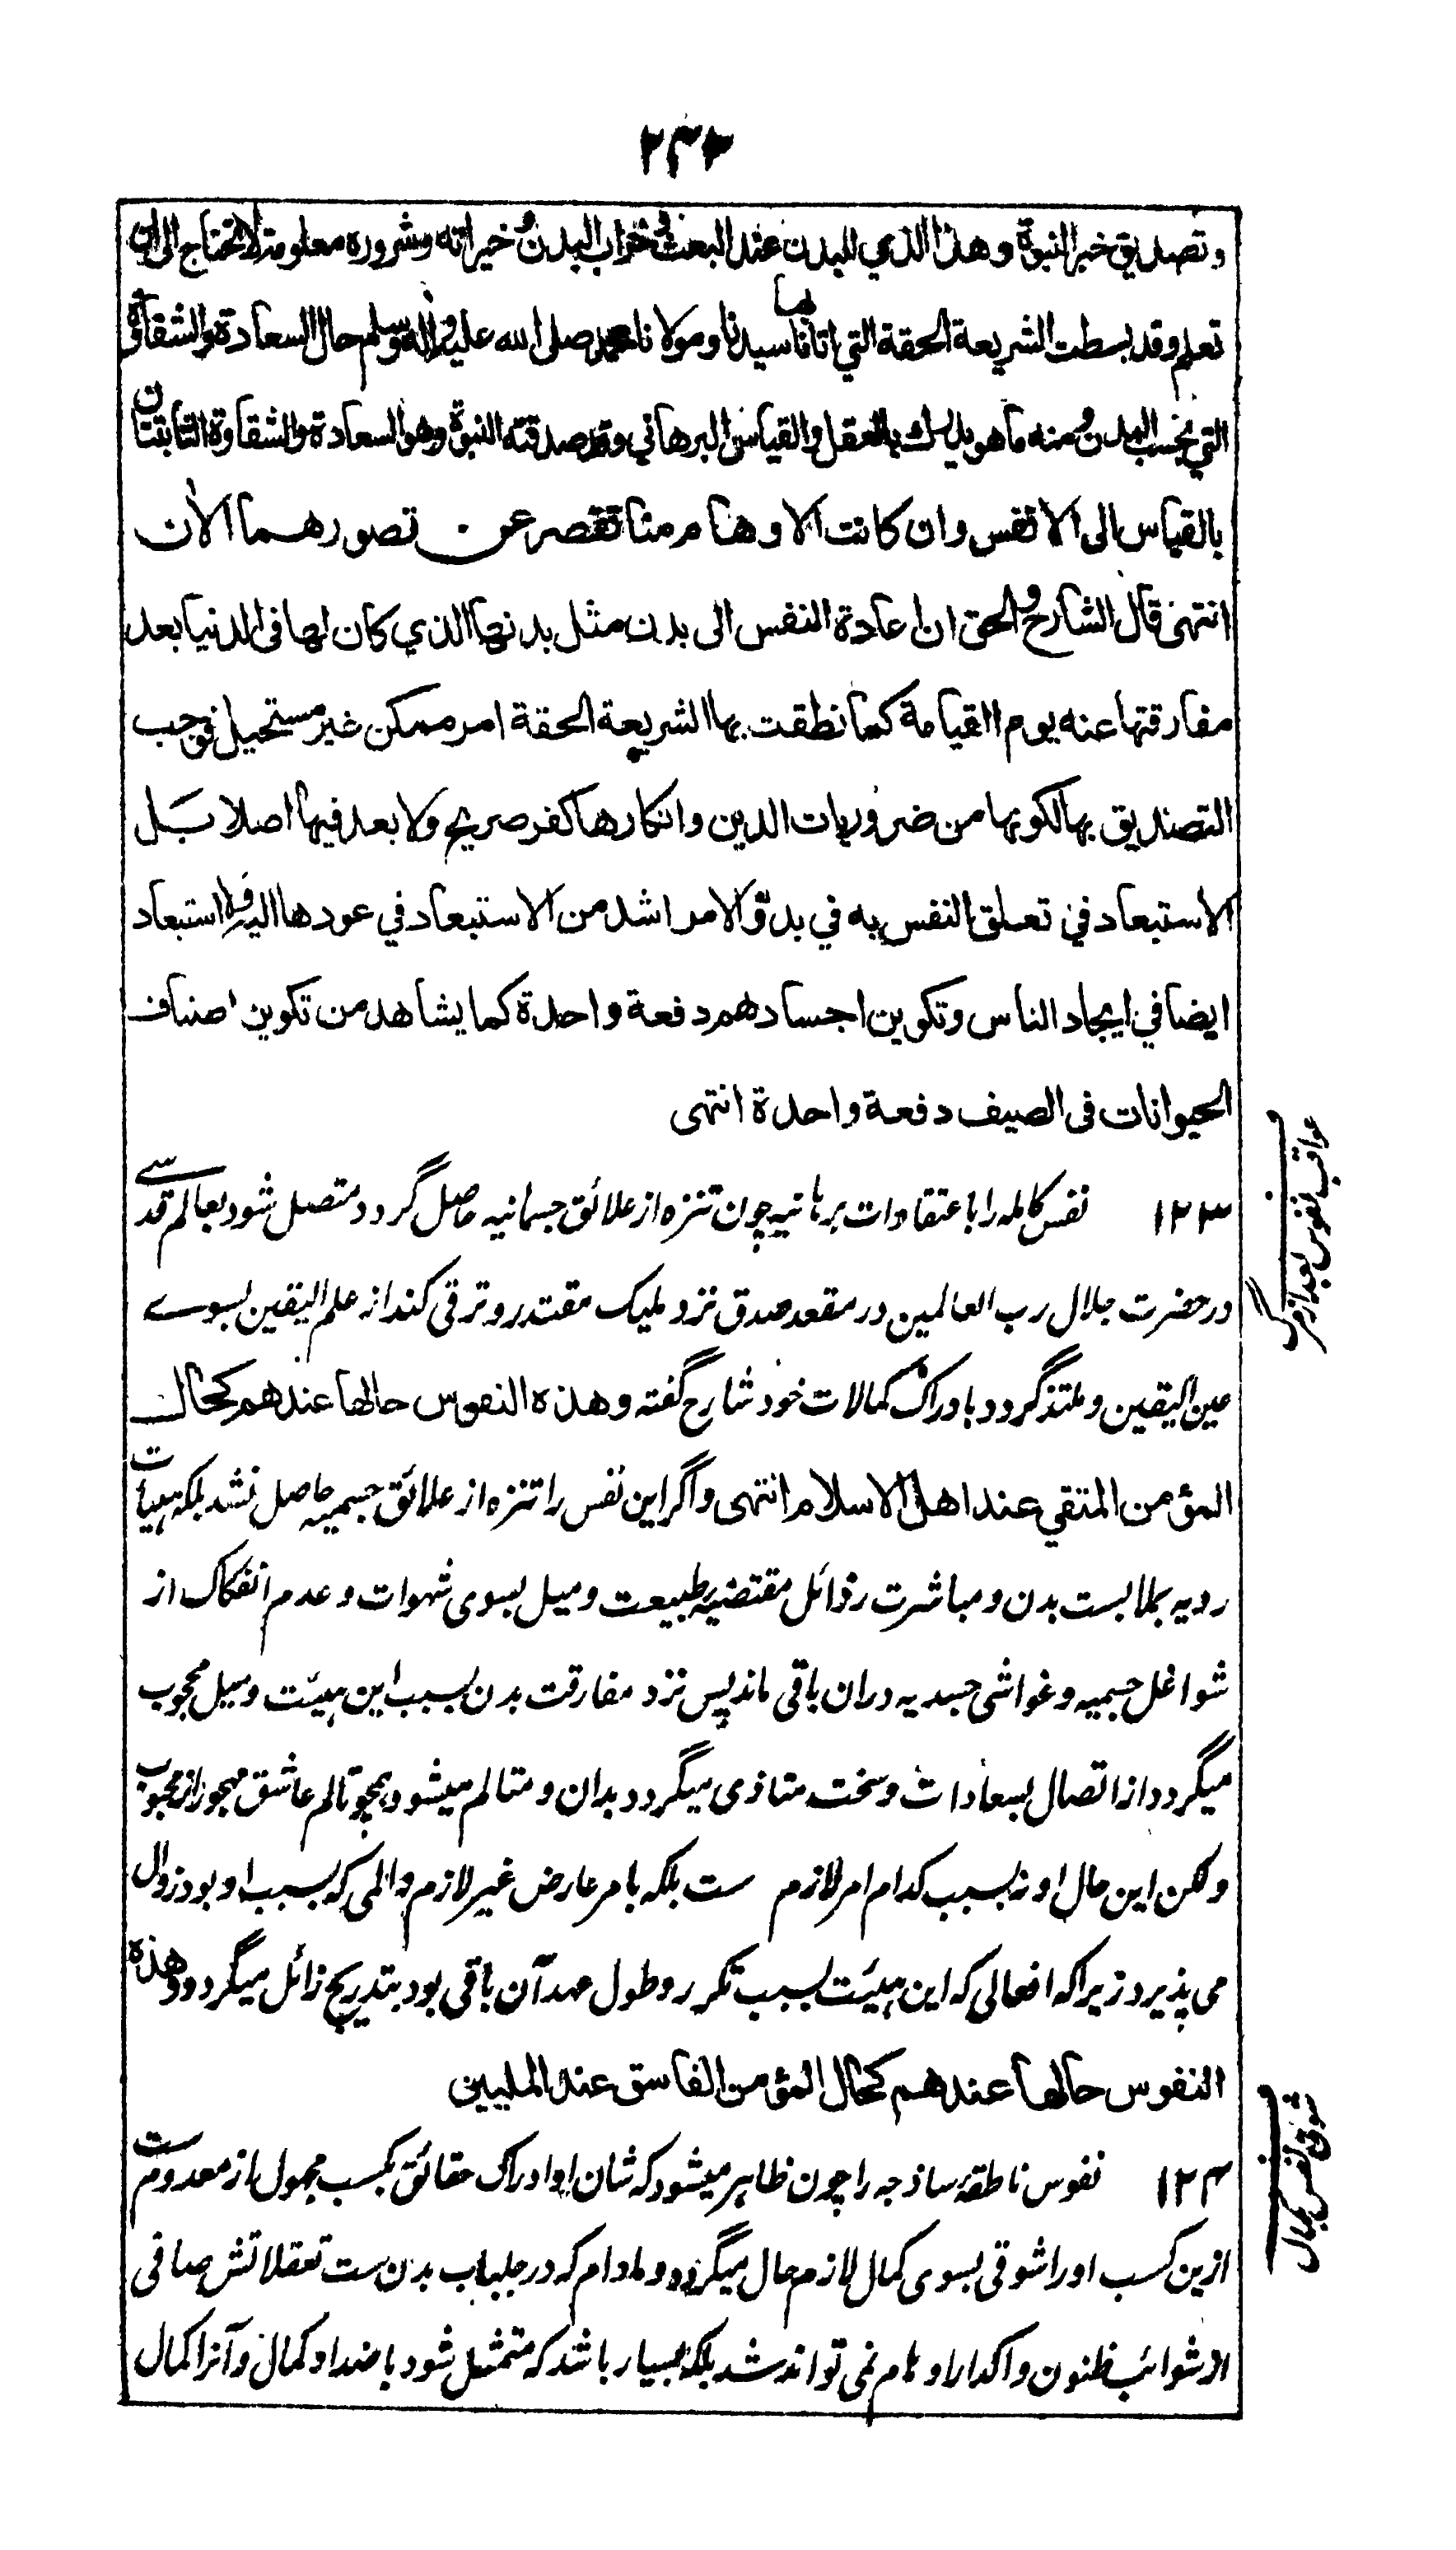 ۲۴۲
وتصديق خبر النبوة وهذا الذي للبدن عند البعث وخراب البدن وخيراته وشروره معلومة لا تحتاج الى ان
تعلم وقد بسطت الشريعة الحقة التي اتانا بها سيدنا ومولانا محمد صلى الله عليه واله وسلم حال السعادة والشقاوة
التي بحسب البدن ومنه ما هو يدرك بالعقل والقياس البرهاني وقد صدقته النبوة وهو السعادة والشقاوة الثابتتان
بالقياس الى الانفس وان كانت الاوهام منا تقصر عن تصورهما الان
انتهى قال الشارح والحق ان اعادة النفس الى بدن مثل بدنها الذي كان لها فى الدنيا بعد
مفارقتها عنه يوم القيامة كما نطقت بها الشريعة الحقة امر ممكن غير مستحيل فوجب
التصديق بها لكونها من ضروريات الدين وانكارها كفر صريح ولا بعد فيها اصلا بَل
الاستبعاد في تعلق النفس به في بدو الامر اشد من الاستبعاد في عودها اليه ولا استبعاد
ايضا في ايجاد الناس وتكوين اجسادهم دفعة واحدة كما يشاهد من تكوين اصناف
الحيوانات فى الصيف دفعة واحدة انتهى
۱۲۳ نفس کامله را با عتقادات برهانیه چون تنزه از علائق جسمانیه حاصل گردد متصل شود بعالم قدسے
در حضرت جلال رب العالمین در مقعد صدق نزد ملیک مقتدر و ترقی کند از علم الیقین بسوے
عین الیقین و ملتذ گردد با دراک کمالات خود شارح گفته وهذه النفوس حالها عندهم كحال
المؤمن المتقي عند اهل الاسلام انتهى و اگر این نفس را تنزه از علائق جسمیه حاصل نشد بلکه هیئات
ردیه بملابست بدن و مباشرت رذائل مقتضیهٔ طبیعت و میل بسوی شهوات و عدم انفکاک از
شواغل جسمیه و غواشی جسدیه دران باقی ماند پس نزد مفارقت بدن بسبب این هیئت و میل محجوب
میگردد از اتصال بسعادات و سخت متاذی میگردد بدان و متالم میشود همچو تالم عاشق مهجور از محبوب
ولکن این حال او نه بسبب کدام امر لازم ست بلکه بامر عارض غیر لازم و المی که بسبب او بود زوال
می پذیرد زیراکه افعالی که این هیئت بسبب تکرر و طول عهد آن باقی بود بتدریج زائل میگردد وهذه
النفوس حالها عندهم كحال المؤمن الفاسق عند المليين
۱۲۴ نفوس ناطقهٔ ساذجه را چون ظاهر میشود که شان او ادراک حقائق بکسب مجهول از معدوم ست
ازین کسب او را شوقی بسوی کمال لازم حال میگردد و مادام که در جلباب بدن ست تعقلاتش صافی
از شوائب ظنون و اکدار اوهام نمی تواند شد بلکه بسیار باشد که متمثل شود باضداد کمال و آنرا کمال
عواقب نفوس بعد از مرگ
شوق نفس بکمال